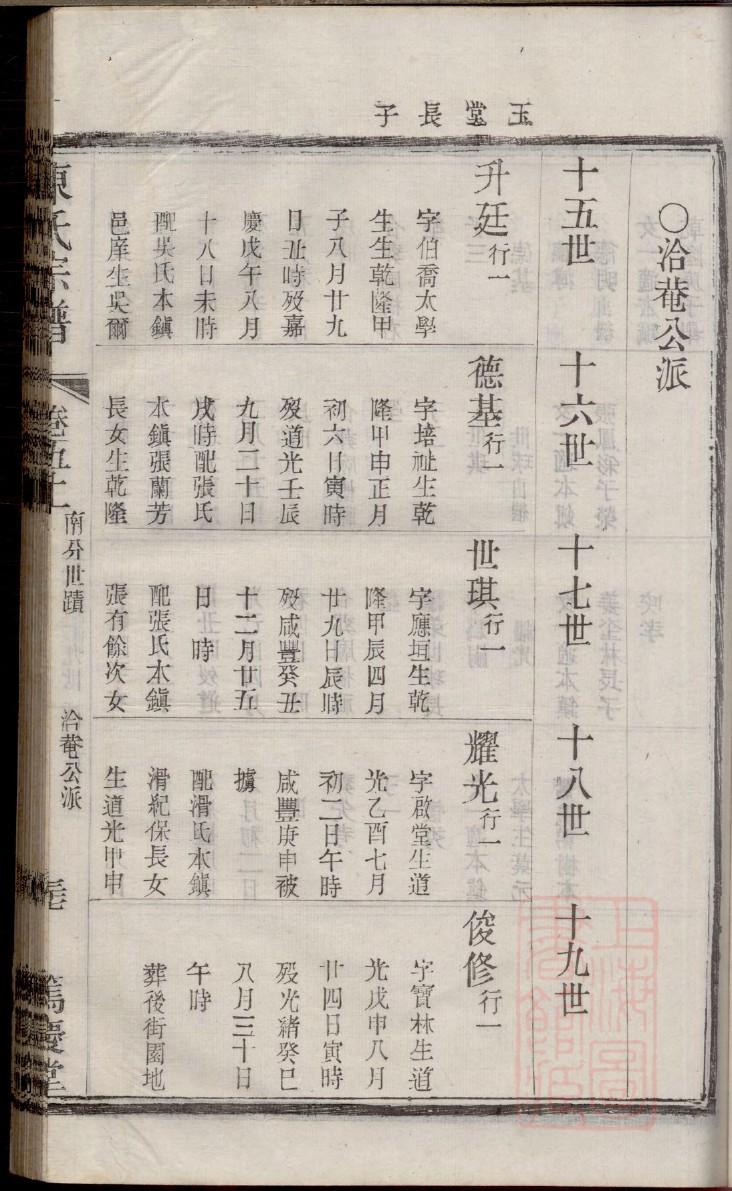 玉堂長子
〇洽菴公派
十五世
十六世
十七世
十八世
十九世
升廷行一
字伯喬太學
生生乾隆甲
子八月廿九
日丑時歿嘉
慶戊午八月
十八日未時
配吳氏本鎮
邑庠生吳爾
德基行一
字培祉生乾
隆甲申正月
初六日寅時
歿道光壬辰
九月二十日
戌時配張氏
本鎮張蘭芳
長女生乾隆
世琪行一
字應垣生乾
隆甲辰四月
廿九日辰時
歿咸豐癸丑
十二月廿五
日 時
配張氏本鎮
張有餘次女
耀光行一
字啟堂生道
光乙酉七月
初二日午時
咸豐庚申被
擄
配滑氏本鎮
滑紀保長女
生道光甲申
俊修行一
字寶林生道
光戊申八月
廿四日寅時
歿光緒癸巳
八月三十日
午時
葬後街園地
陳氏宗譜
卷五十
南分世蹟
洽菴公派
篤慶堂